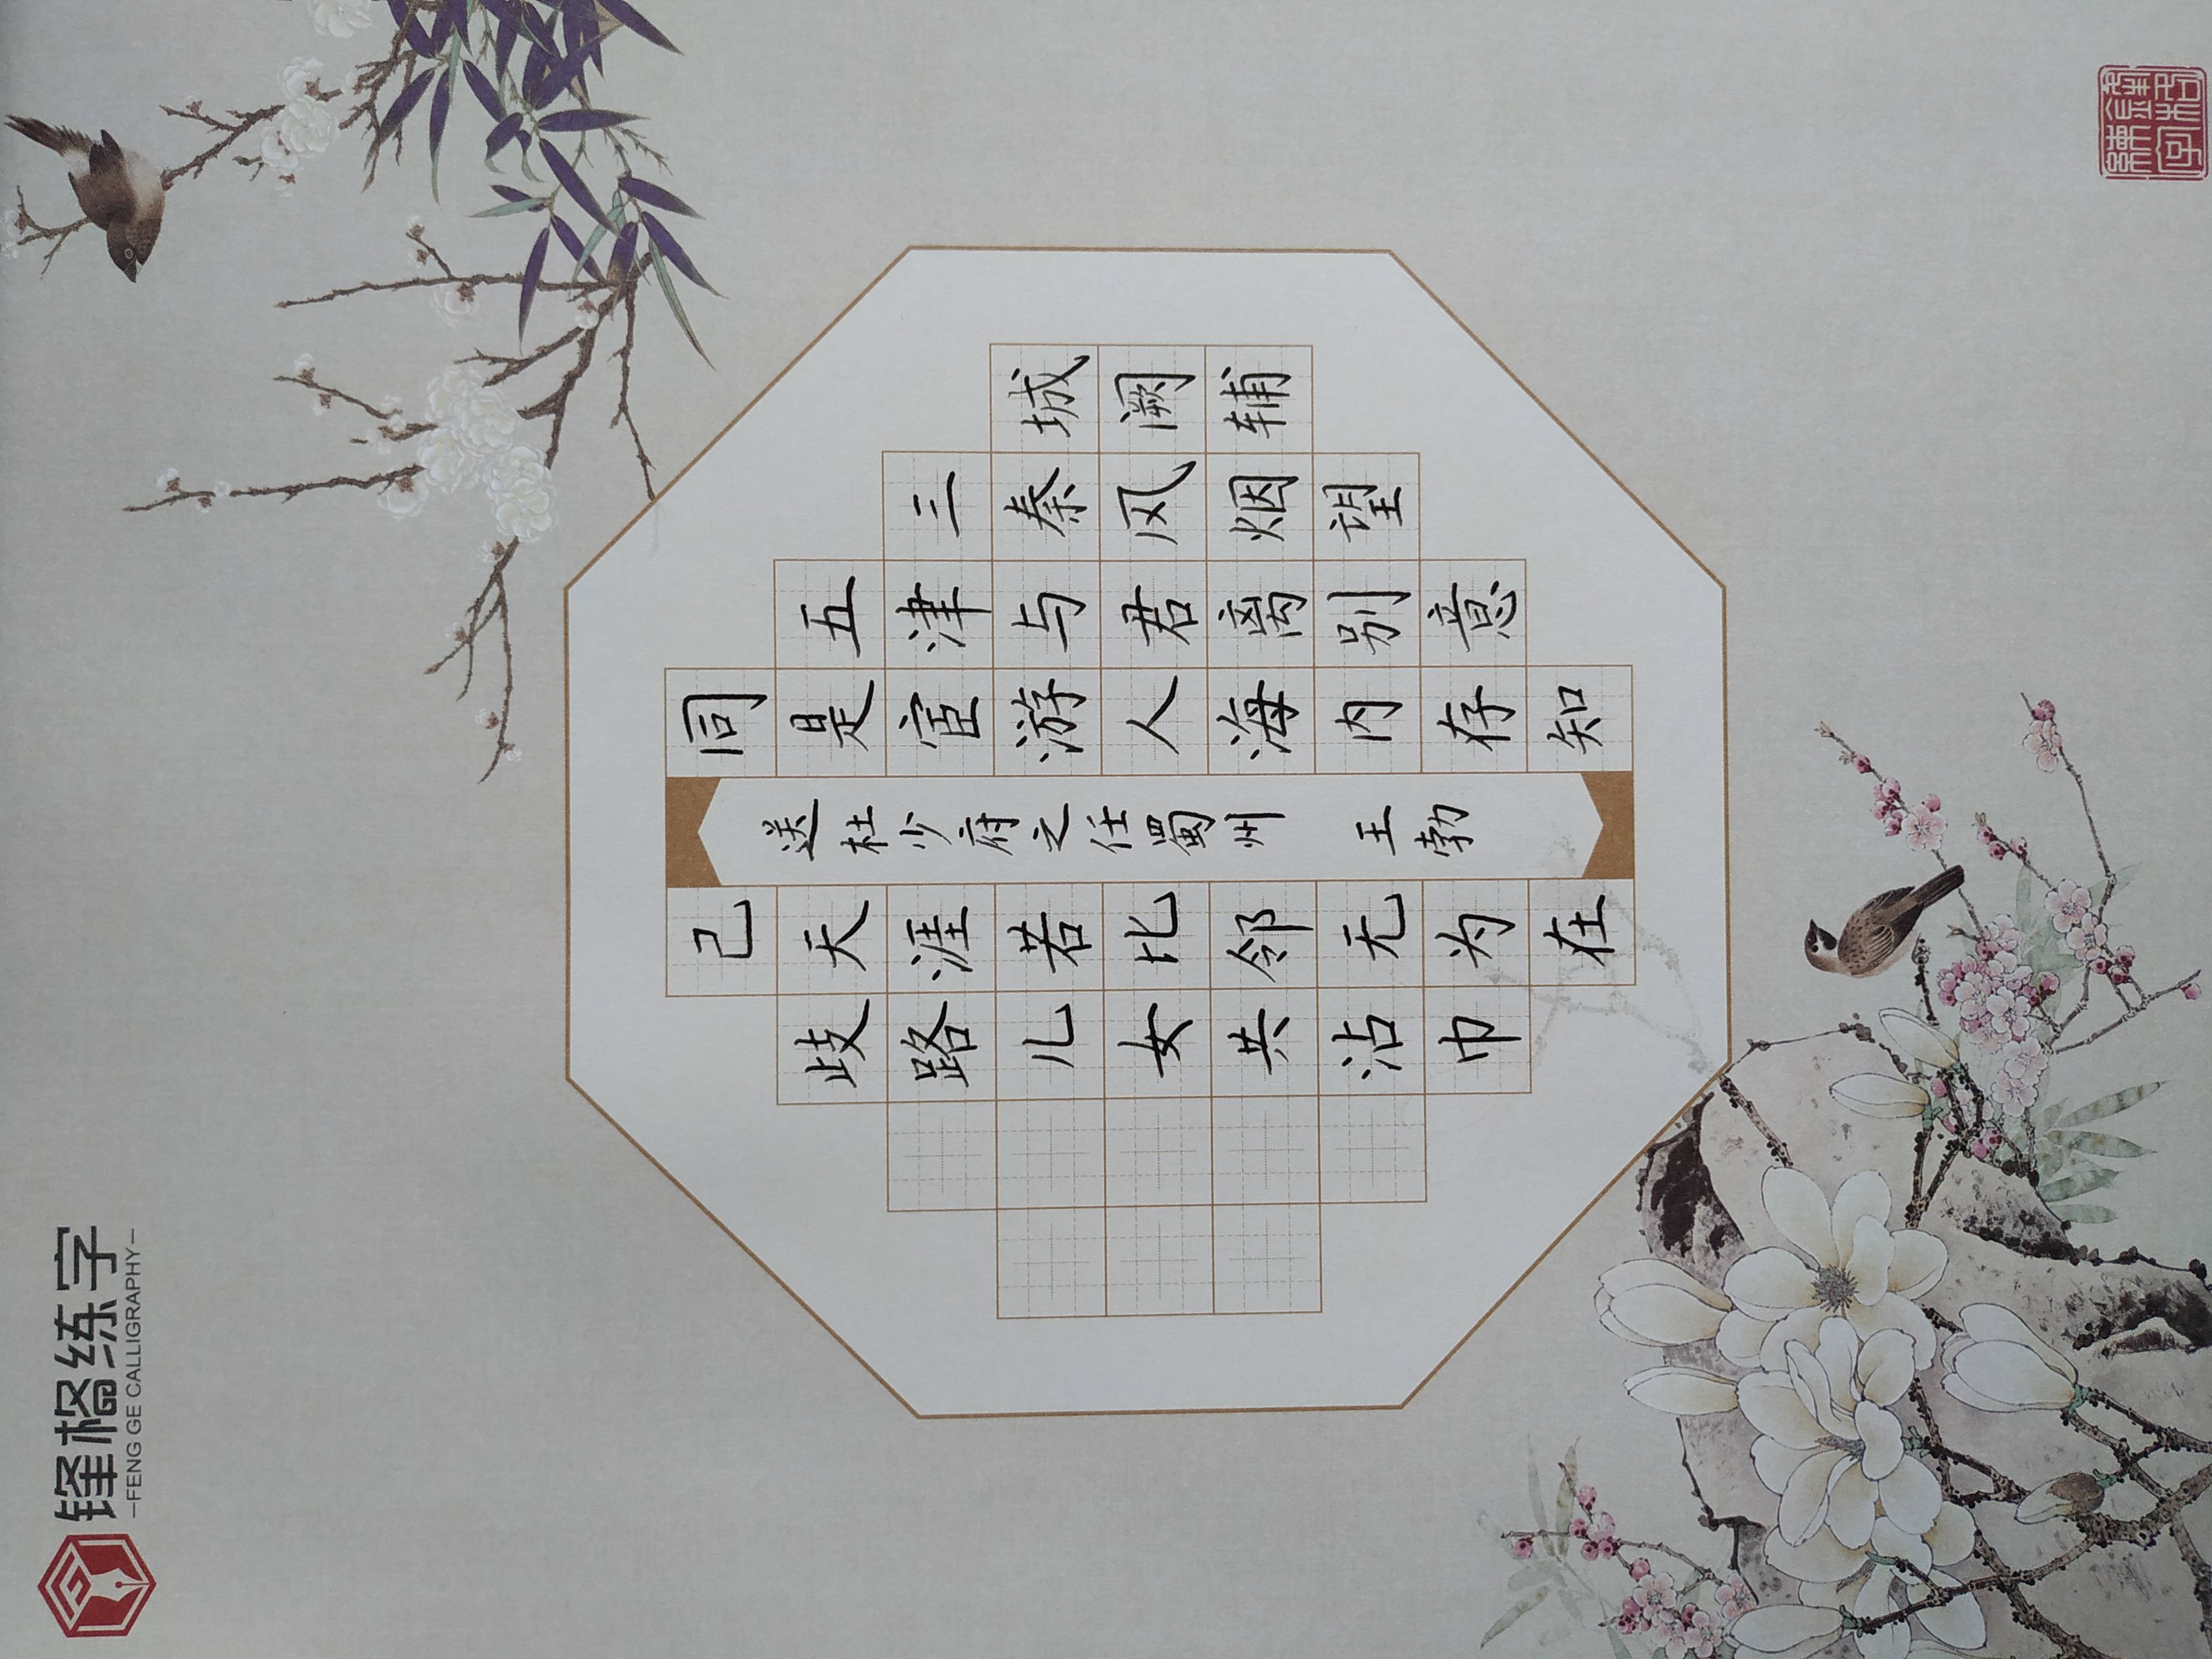 锋格练字
FENG GE CALLIGRAPHY
城阙辅
三秦风烟望
五津与君离别意
同是宦游人海内存知
送杜少府之任蜀州 王勃
己天涯若比邻无为在
歧路儿女共沾巾